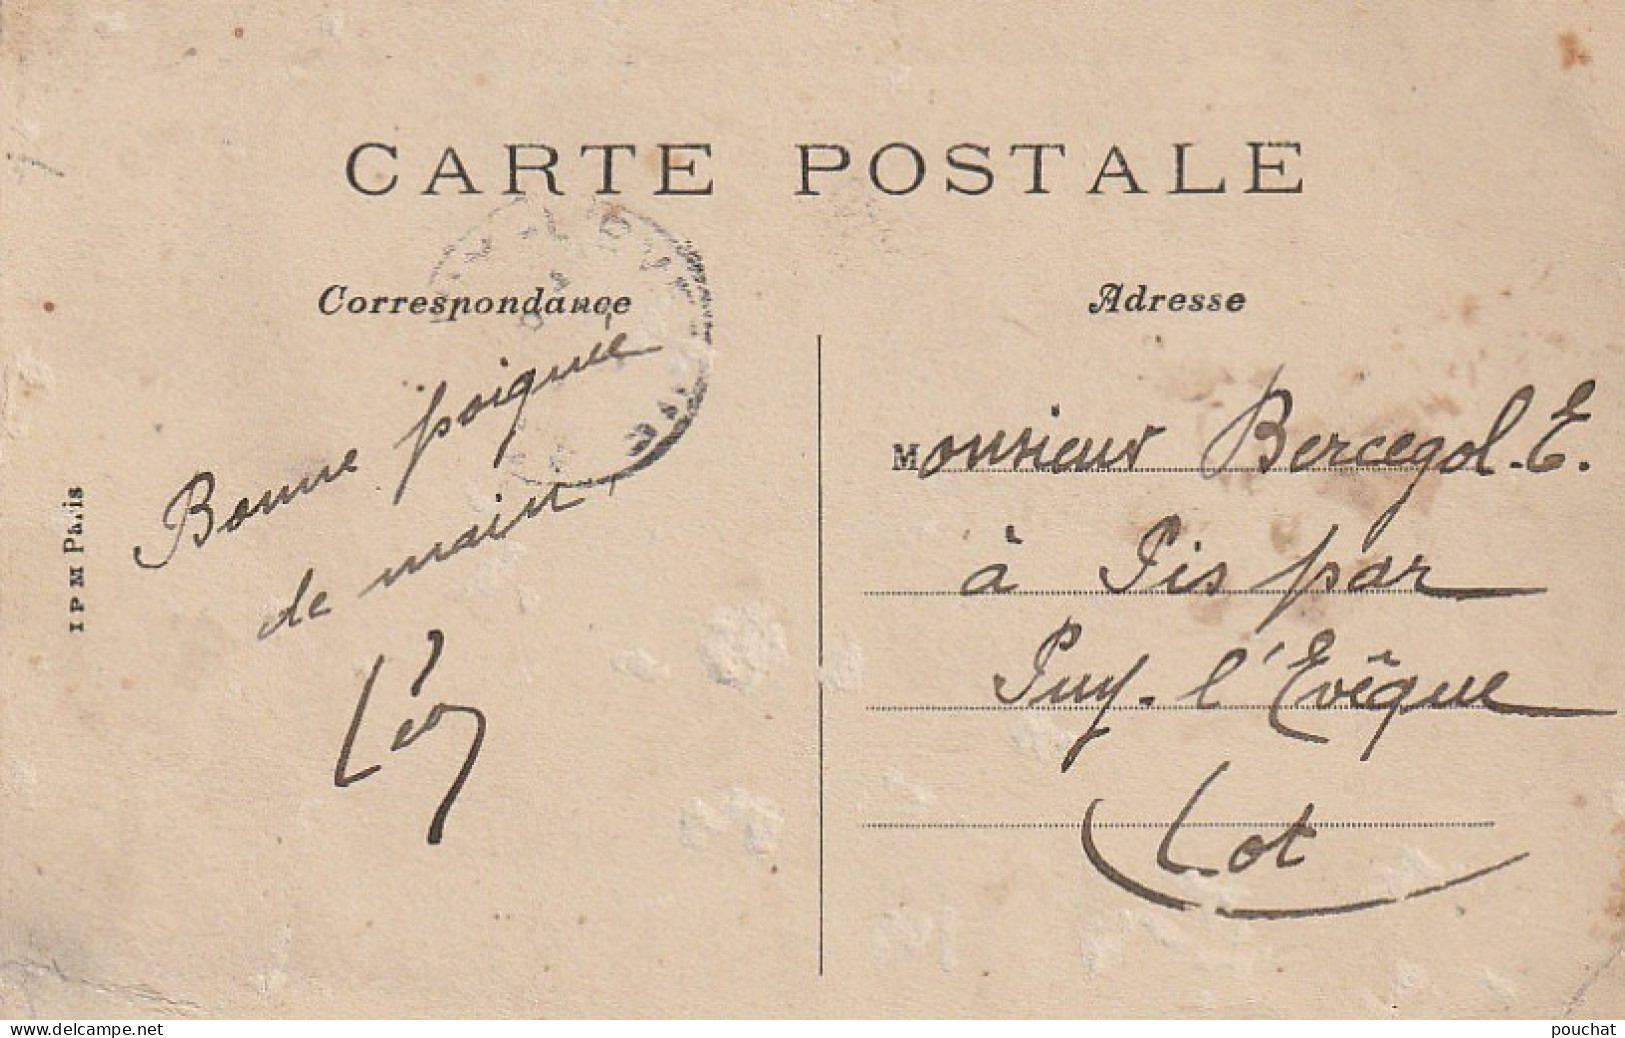 CARTE POSTALE
Correspondance
Adresse
Bonne poignée
de main
Léo
Monsieur Bercegol. E.
à Pis par
Puy-l'Evêque
Lot
IPM Paris
www.delcampe.net
pouchat